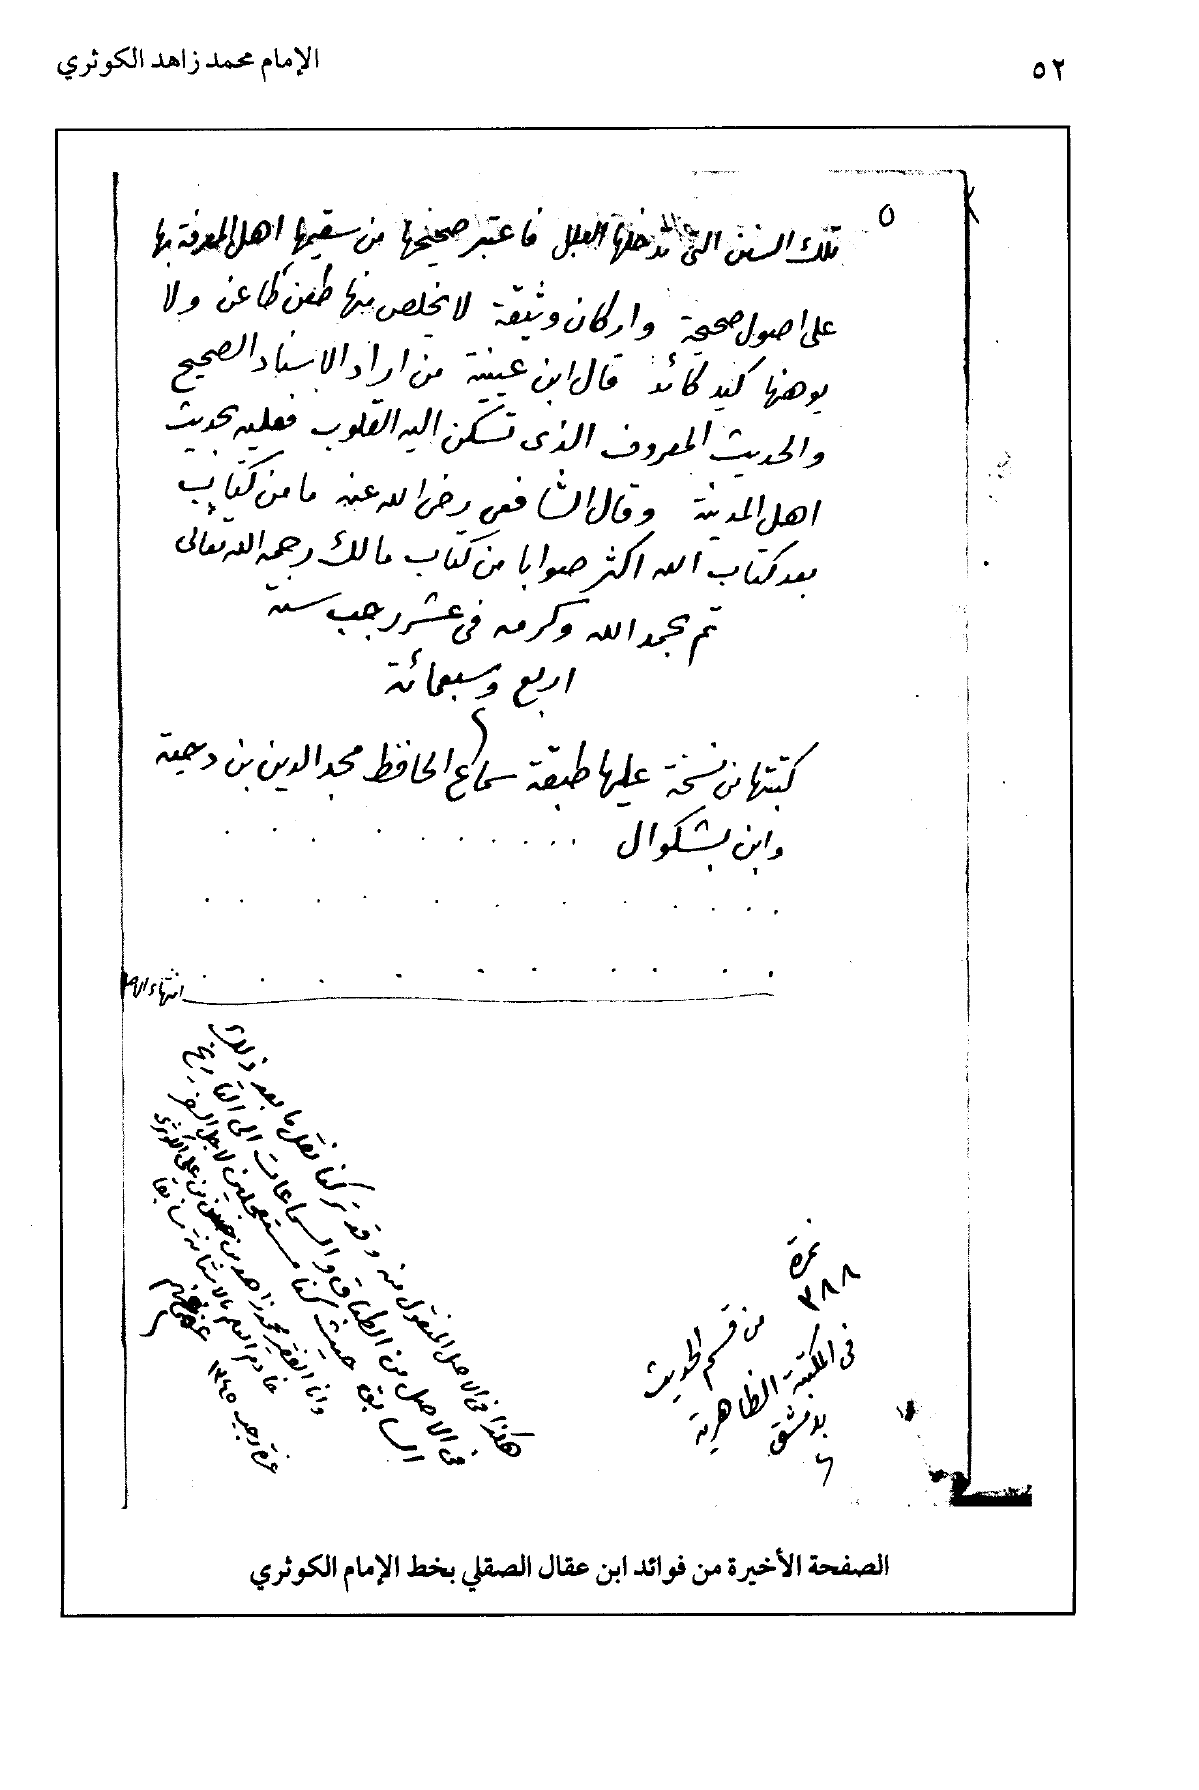 ٥٢
الإمام محمد زاهد الكوثري
٥
تلك السنن التي تدخلها العلل فاعتبر صحيحها من سقيمها اهل المعرفة بها
على اصول صحيحة واركان وثيقة لا يخلص منها طعن طاعن ولا
يوهنها كيد كائد قال ابن عيينة من اراد الاسناد الصحيح
والحديث المعروف الذى تسكن اليه القلوب فعليه بحديث
اهل المدينة وقال الشافعى رضى الله عنه ما من كتاب
بعد كتاب الله اكثر صوابا من كتاب مالك رحمه الله تعالى
تم بحمد الله وكرمه فى عشر رجب سنة
اربع وسبعمائة
كتبتها من نسخة عليها طبقة سماع الحافظ مجد الدين بن دحية
وابن بشكوال . . . . . . . . . .
انتهاء
هكذا فى الاصل المنقول منه وقد تركنا نقل ما بعد ذلك
فى الاصل من الطباق والسماعات الى التاريخ
السابق حيث كنا مستعجلين لاجل السفر
وانا الفقير محمد زاهد بن حسن بن على الكوثرى
خادم العلم بالاستانة سابقا
عفى عنهم
غرة رجب ١٣٤٥
نمرة
٣٨٨
من قسم الحديث
فى المكتبة الظاهرية
بدمشق
الصفحة الأخيرة من فوائد ابن عقال الصقلي بخط الإمام الكوثري